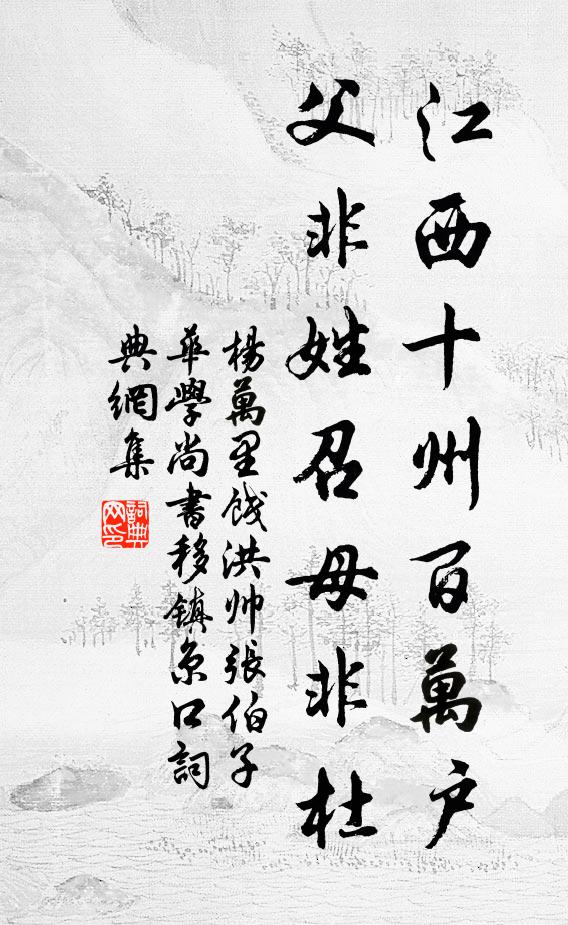 江西十州百萬户
父非姓召母非杜
楊萬里餞洪帅張伯子
華學尚書移镇京口詞
典網集
詞典网印